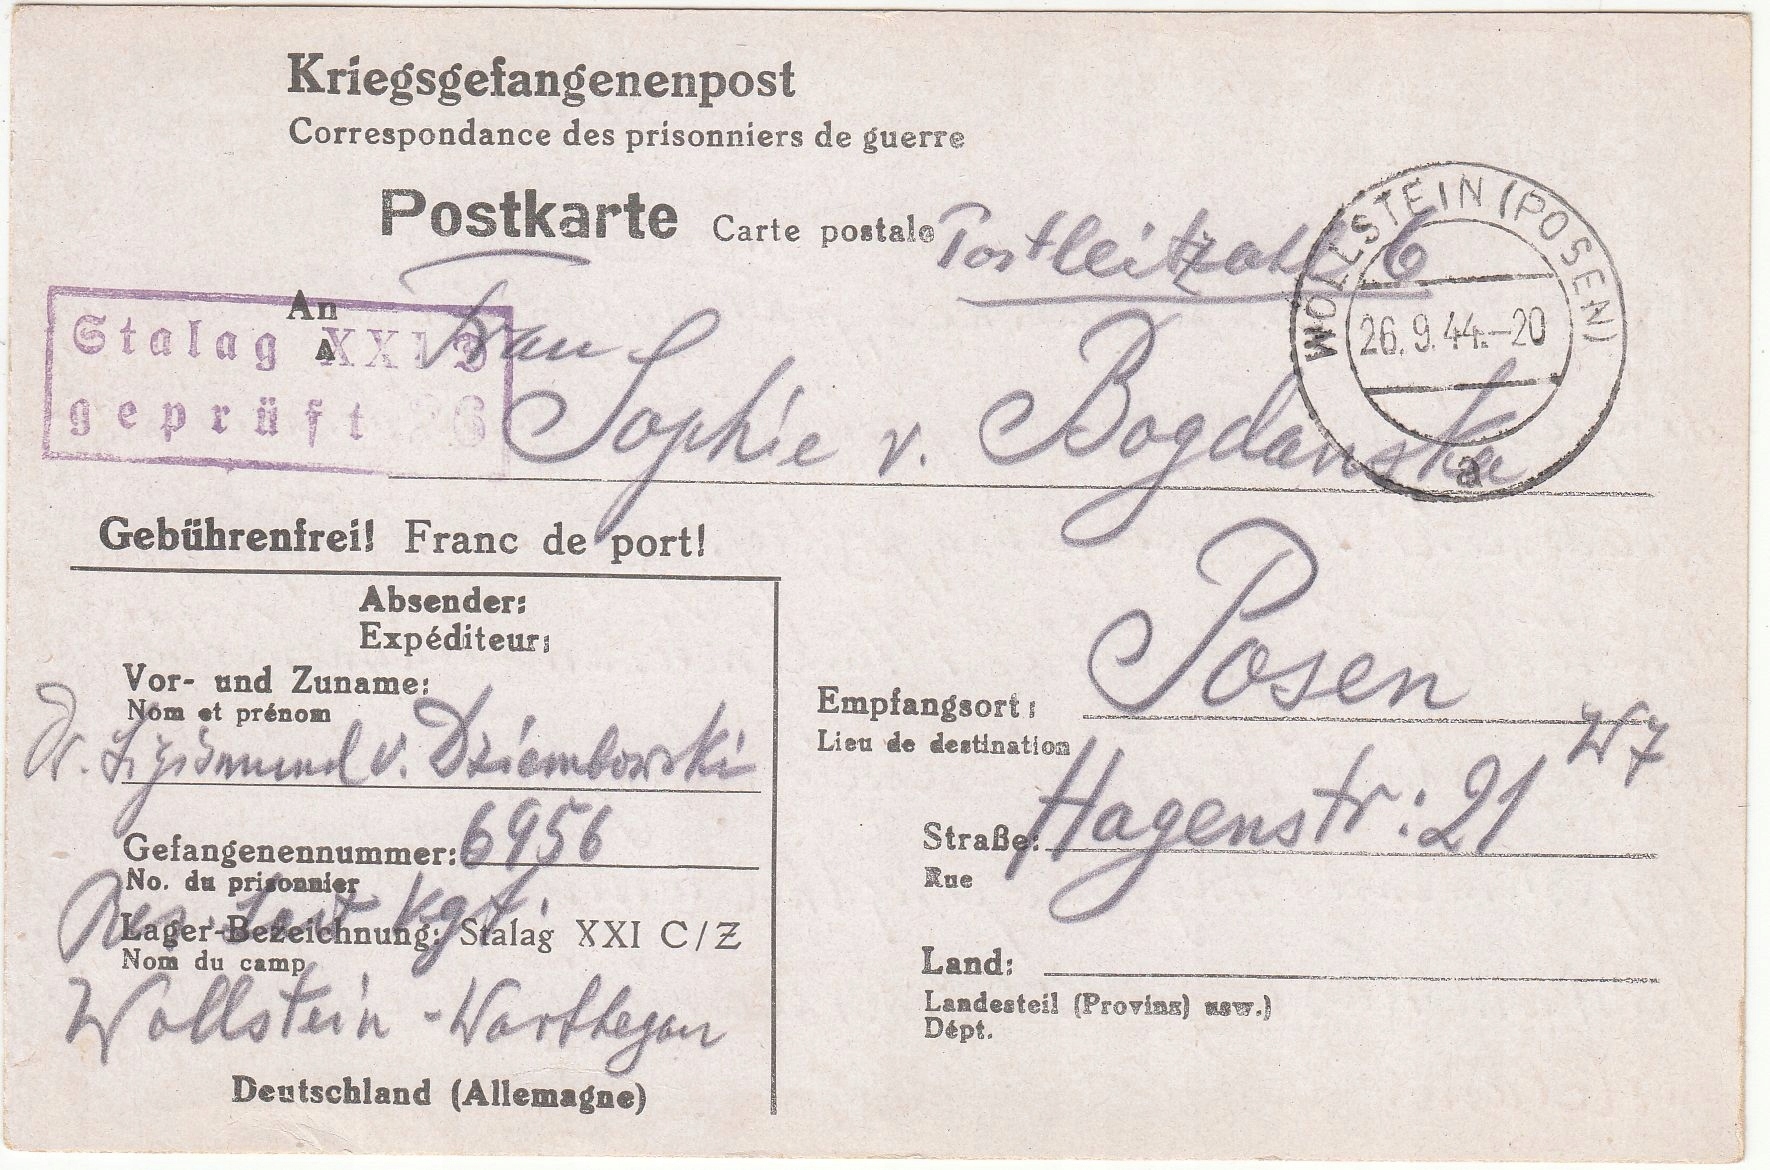 Kriegsgefangenenpost
Correspondance des prisonniers de guerre
Postkarte Carte postale
Postleitzahl 6
WOLLSTEIN (POSEN)
26.9.44.-20
a
An
A
Stalag XXI D
geprüft 26
Frau
Sophie v. Bogdanska
Gebührenfrei! Franc de port!
Absender:
Expéditeur:
Vor- und Zuname:
Nom et prénom
Dr. Sigismund v. Dziembowski
Gefangenennummer: 6956
No. du prisonnier
Res. Laz. Kgf.
Lager-Bezeichnung: Stalag XXI C/Z
Nom du camp
Wollstein - Warthegau
Deutschland (Allemagne)
Empfangsort: Posen W7
Lieu de destination
Straße: Hagenstr: 21
Rue
Land:
Landesteil (Provinz) usw.)
Dépt.